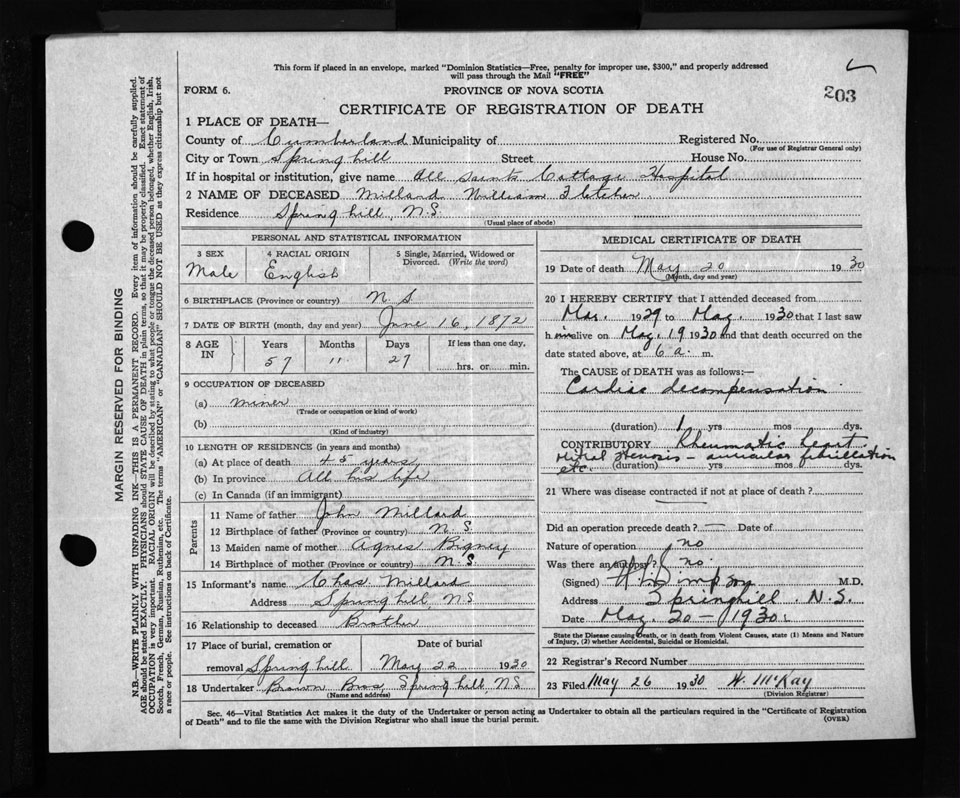 This form if placed in an envelope, marked "Dominion Statistics—Free, penalty for improper use, $300," and properly addressed
will pass through the Mail "FREE"
203
FORM 6. PROVINCE OF NOVA SCOTIA
CERTIFICATE OF REGISTRATION OF DEATH
1 PLACE OF DEATH—
County of Cumberland Municipality of Registered No.
(For use of Registrar General only)
City or Town Springhill Street House No.
If in hospital or institution, give name All Saints Cottage Hospital
2 NAME OF DECEASED Millard William Fletcher
Residence Springhill, N.S.
(Usual place of abode)
PERSONAL AND STATISTICAL INFORMATION
3 SEX 4 RACIAL ORIGIN 5 Single, Married, Widowed or
Divorced. (Write the word)
Male English
6 BIRTHPLACE (Province or country) N.S.
7 DATE OF BIRTH (month, day and year) June 16, 1872
8 AGE IN Years Months Days If less than one day,
57 11 27 hrs. or min.
9 OCCUPATION OF DECEASED
(a) miner
(Trade or occupation or kind of work)
(b)
(Kind of industry)
10 LENGTH OF RESIDENCE (in years and months)
(a) At place of death 45 years
(b) In province All his life
(c) In Canada (if an immigrant)
Parents
11 Name of father John Millard
12 Birthplace of father (Province or country) N.S.
13 Maiden name of mother Agnes Bigney
14 Birthplace of mother (Province or country) N.S.
15 Informant's name Chas. Millard
Address Springhill NS
16 Relationship to deceased Brother
17 Place of burial, cremation or Date of burial
removal Springhill May 22 1930
18 Undertaker Brown Bros Springhill NS
(Name and address)
MEDICAL CERTIFICATE OF DEATH
19 Date of death May 20 1930
(Month, day and year)
20 I HEREBY CERTIFY that I attended deceased from
Mar. 1929 to May. 1930 that I last saw
him alive on May. 19 1930 and that death occurred on the
date stated above, at 6 a. m.
The CAUSE of DEATH was as follows:—
Cardiac decompensation
(duration) 1 yrs mos dys.
CONTRIBUTORY Rheumatic heart
Mitral stenosis – auricular fibrillation
etc. (duration) yrs mos dys.
21 Where was disease contracted if not at place of death?
Did an operation precede death? — Date of
Nature of operation no
Was there an autopsy? no
(Signed) Simpson M.D.
Address Springhill. N.S.
Date May 20 – 1930.
State the Disease causing Death, or in death from Violent Causes, state (1) Means and Nature
of Injury, (2) whether Accidental, Suicidal or Homicidal.
22 Registrar's Record Number
23 Filed May 26 1930 W. McKay
(Division Registrar)
Sec. 46—Vital Statistics Act makes it the duty of the Undertaker or person acting as Undertaker to obtain all the particulars required in the "Certificate of Registration
of Death" and to file the same with the Division Registrar who shall issue the burial permit. (OVER)
MARGIN RESERVED FOR BINDING
N.B.—WRITE PLAINLY WITH UNFADING INK—THIS IS A PERMANENT RECORD. Every item of information should be carefully supplied.
AGE should be stated EXACTLY. PHYSICIANS should STATE CAUSE OF DEATH in plain terms, so that it may be properly classified. Exact statement of
OCCUPATION is very important. RACIAL ORIGIN will be described by stating to what people or tongue the deceased person belonged, whether English, Irish,
Scotch, French, German, Russian, Ruthenian, etc. The terms "AMERICAN" or "CANADIAN" SHOULD NOT BE USED as they express citizenship but not
a race or people. See instructions on back of Certificate.